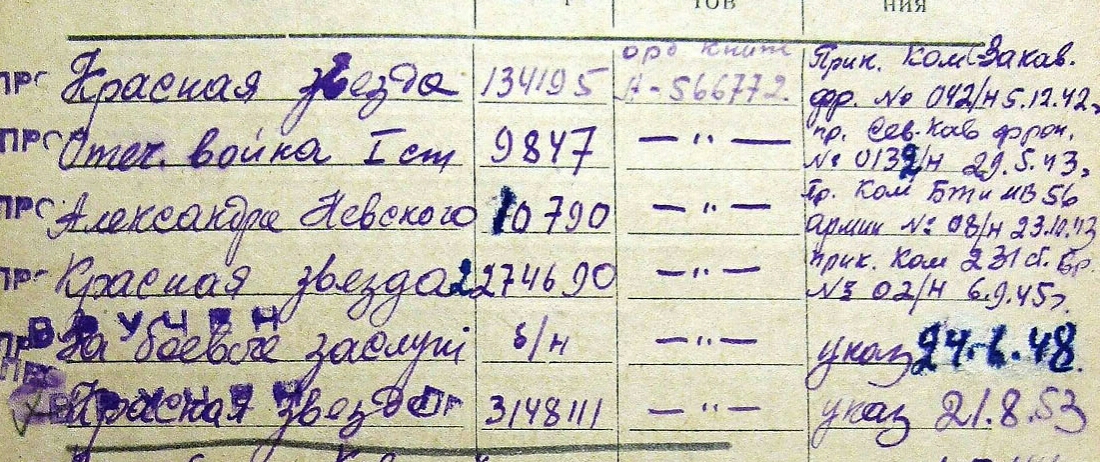 тов
ния
ПРО Красная звезда 134195 орд книж А-566772. Прик. Ком. Закав. фр. № 042/н 5.12.42г
ПРО Отеч. война I ст 9847 — " — пр. Сев-Кав фрон. № 0132/н 29.5.43г
ПРО Александра Невского 10790 — " — Пр. Ком БТиМВ 56 армии № 08/н 23.10.43
ПРО Красная звезда 2274690 — " — прик. Ком 231 т. бр. № 02/н 6.9.45г
ВРУЧЕН
За боевые заслуги б/н — " — указ 24.6.48.
ВРУЧЕН
Красная звезда 3148111 — " — указ 21.8.53